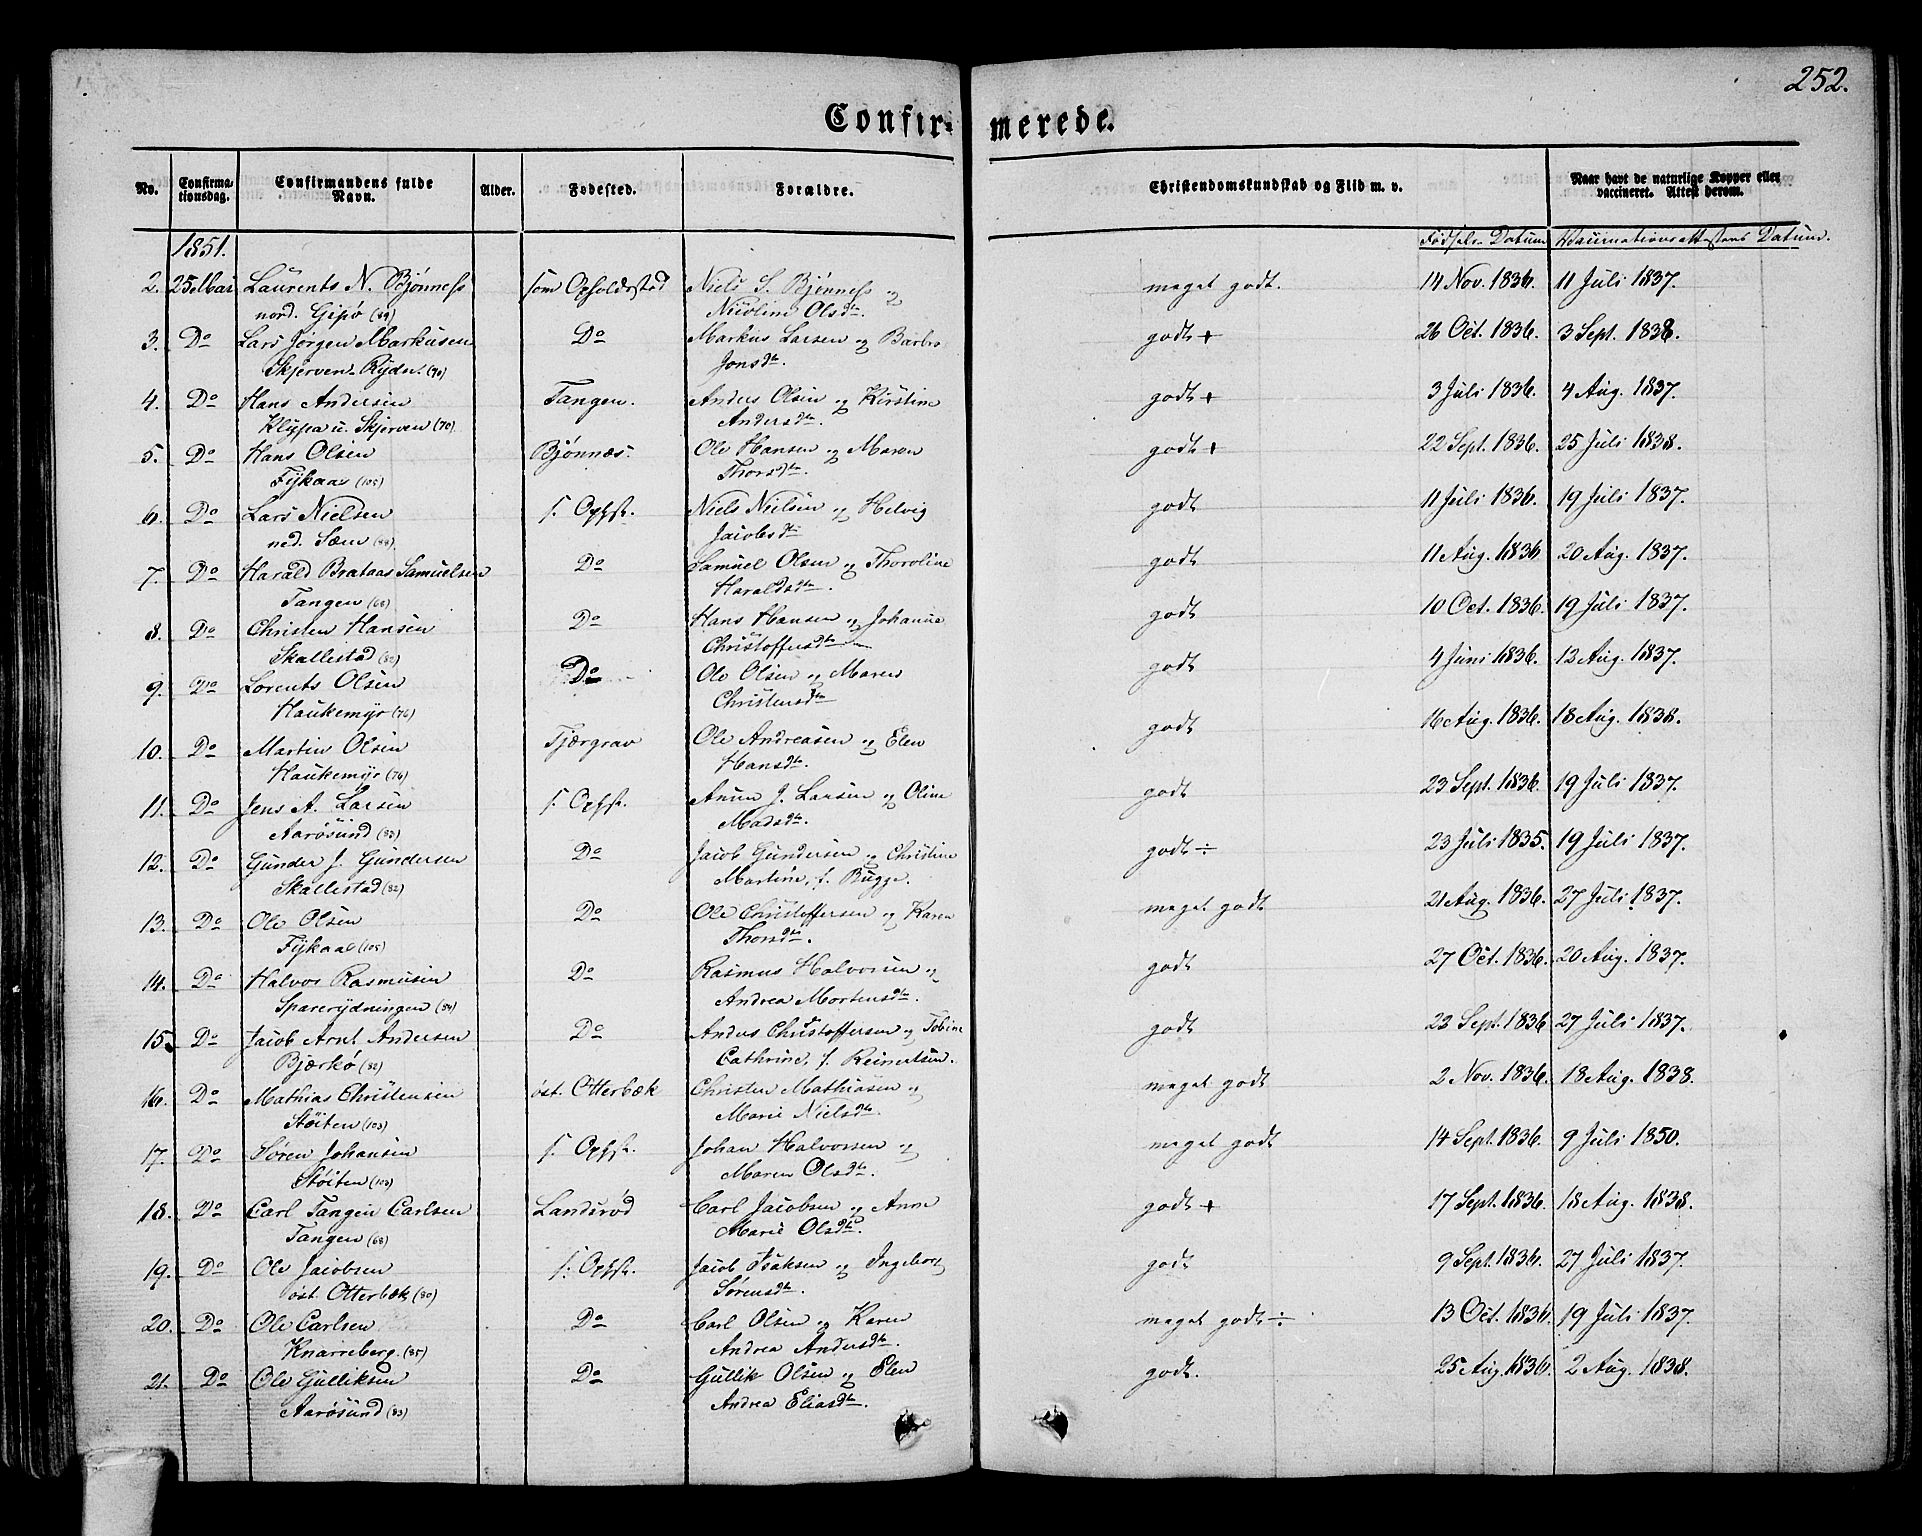 252.
Confir- merede.
No. Confirma-tionsdag. Confirmandens fulde Navn. Alder. Fødested. Forældre. Christendomskundskab og Flid m. v. Naar havt de naturlige Kopper eller vaccineret. Attest herom.
1851. Fødsels-Datum Datum.
2. 25 Mai Laurents N. Bjønness som Opholdsstad Niels S. Bjønness og meget godt. 14 Nov. 1836. 11 Juli 1837.
nord. Gipø (84) Nicoline Olsdtr.
3. Do Lars Jørgen Markusen Do Markus Larsen og Barbro godt + 26 Oct. 1836. 3 Sept. 1838.
Skjerven-Rydn. (70) Jonsdtr.
4. Do Hans Andersen Tangen. Anders Olsen og Kirstine godt + 3 Juli 1836. 4 Aug. 1837.
Klypa u. Skjerven (70) Andersdtr.
5. Do Hans Olsen Bjønnæs. Ole Hansen og Maren godt + 22 Sept. 1836. 25 Juli 1838.
Fykaas (105) Thorsdtr.
6. Do Lars Nielsen s. Ophst. Niels Nielsen og Helvig godt 11 Juli 1836. 19 Juli 1837.
ned. Sæm (88) Jacobsdtr
7. Do Harald Brataas Samuelsen Do Samuel Olsen og Thoroline godt 11 Aug. 1836 20 Aug. 1837.
Tangen (68) Haraldsdtr.
8. Do Christen Hansen Do Hans Hansen og Johanne godt 10 Oct. 1836. 19 Juli 1837.
Skallestad (82) Christoffersdtr
9. Do Lorents Olsen Do Ole Olsen og Maren godt 4 Juni 1836. 12 Aug. 1837.
Haukemyr (76) Christensdtr
10. Do Martin Olsen Tjærgrav Ole Andreasen og Elen godt 16 Aug. 1836. 18 Aug. 1838.
Haukemyr (76) Hansdtr.
11. Do Jens A. Larsen s. Ophst. J. Larsen og Oline godt 23 Sept. 1836. 19 Juli 1837.
Aarøsund (83) Madsdtr.
12. Do Gunder J. Gundersen Do Jacob Gundersen og Christine godt ÷ 23 Juli 1835. 19 Juli 1837.
Skallestad (82) Martine, f. Bugge.
13. Do Ole Olsen Do Ole Christoffersen og Karen meget godt 21 Aug. 1836. 27 Juli 1837.
Fykaas (105) Thorsdtr.
14. Do Halvor Rasmusen Do Rasmus Halvorsen og godt 27 Oct. 1836. 20 Aug. 1837.
Sparerydningen (84) Andrea Mortensdtr.
15. Do Jacob Arnt Andersen Do Anders Christoffersen og Tobine godt 23 Sept. 1836 27 Juli 1837.
Bjærkø (82) Cathrine, f. Reinertsen.
16. Do Mathias Christensen øst. Otterbæk Christen Mathiasen og meget godt 2 Nov. 1836. 18 Aug. 1838.
Støiten (103) Marie Nielsdtr.
17. Do Søren Johansen s. Ophst. Johan Halvorsen og meget godt 14 Sept. 1836. 9 Juli 1850.
Støiten (103) Maren Olsdtr.
18. Do Carl Tangen Carlsen Landsrød Carl Jacobsen og Anne godt + 17 Sept. 1836. 18 Aug. 1838.
Tangen (68) Marie Olsdtr.
19. Do Ole Jacobsen s. Ophst. Jacob Isaksen og Ingeborg godt 9 Sept. 1836. 27 Juli 1837.
øst. Otterbæk (80) Sørensdtr.
20. Do Ole Carlsen Do Carl Olsen og Karen meget godt ÷ 13 Oct. 1836. 19 Juli 1837.
Knarreberg. (85) Andrea Andersdtr.
21. Do Ole Gulliksen Do Gullik Olsen og Elen godt. 25 Aug. 1836. 2 Aug. 1838.
Aarøsund (83) Andrea Eliasdtr.